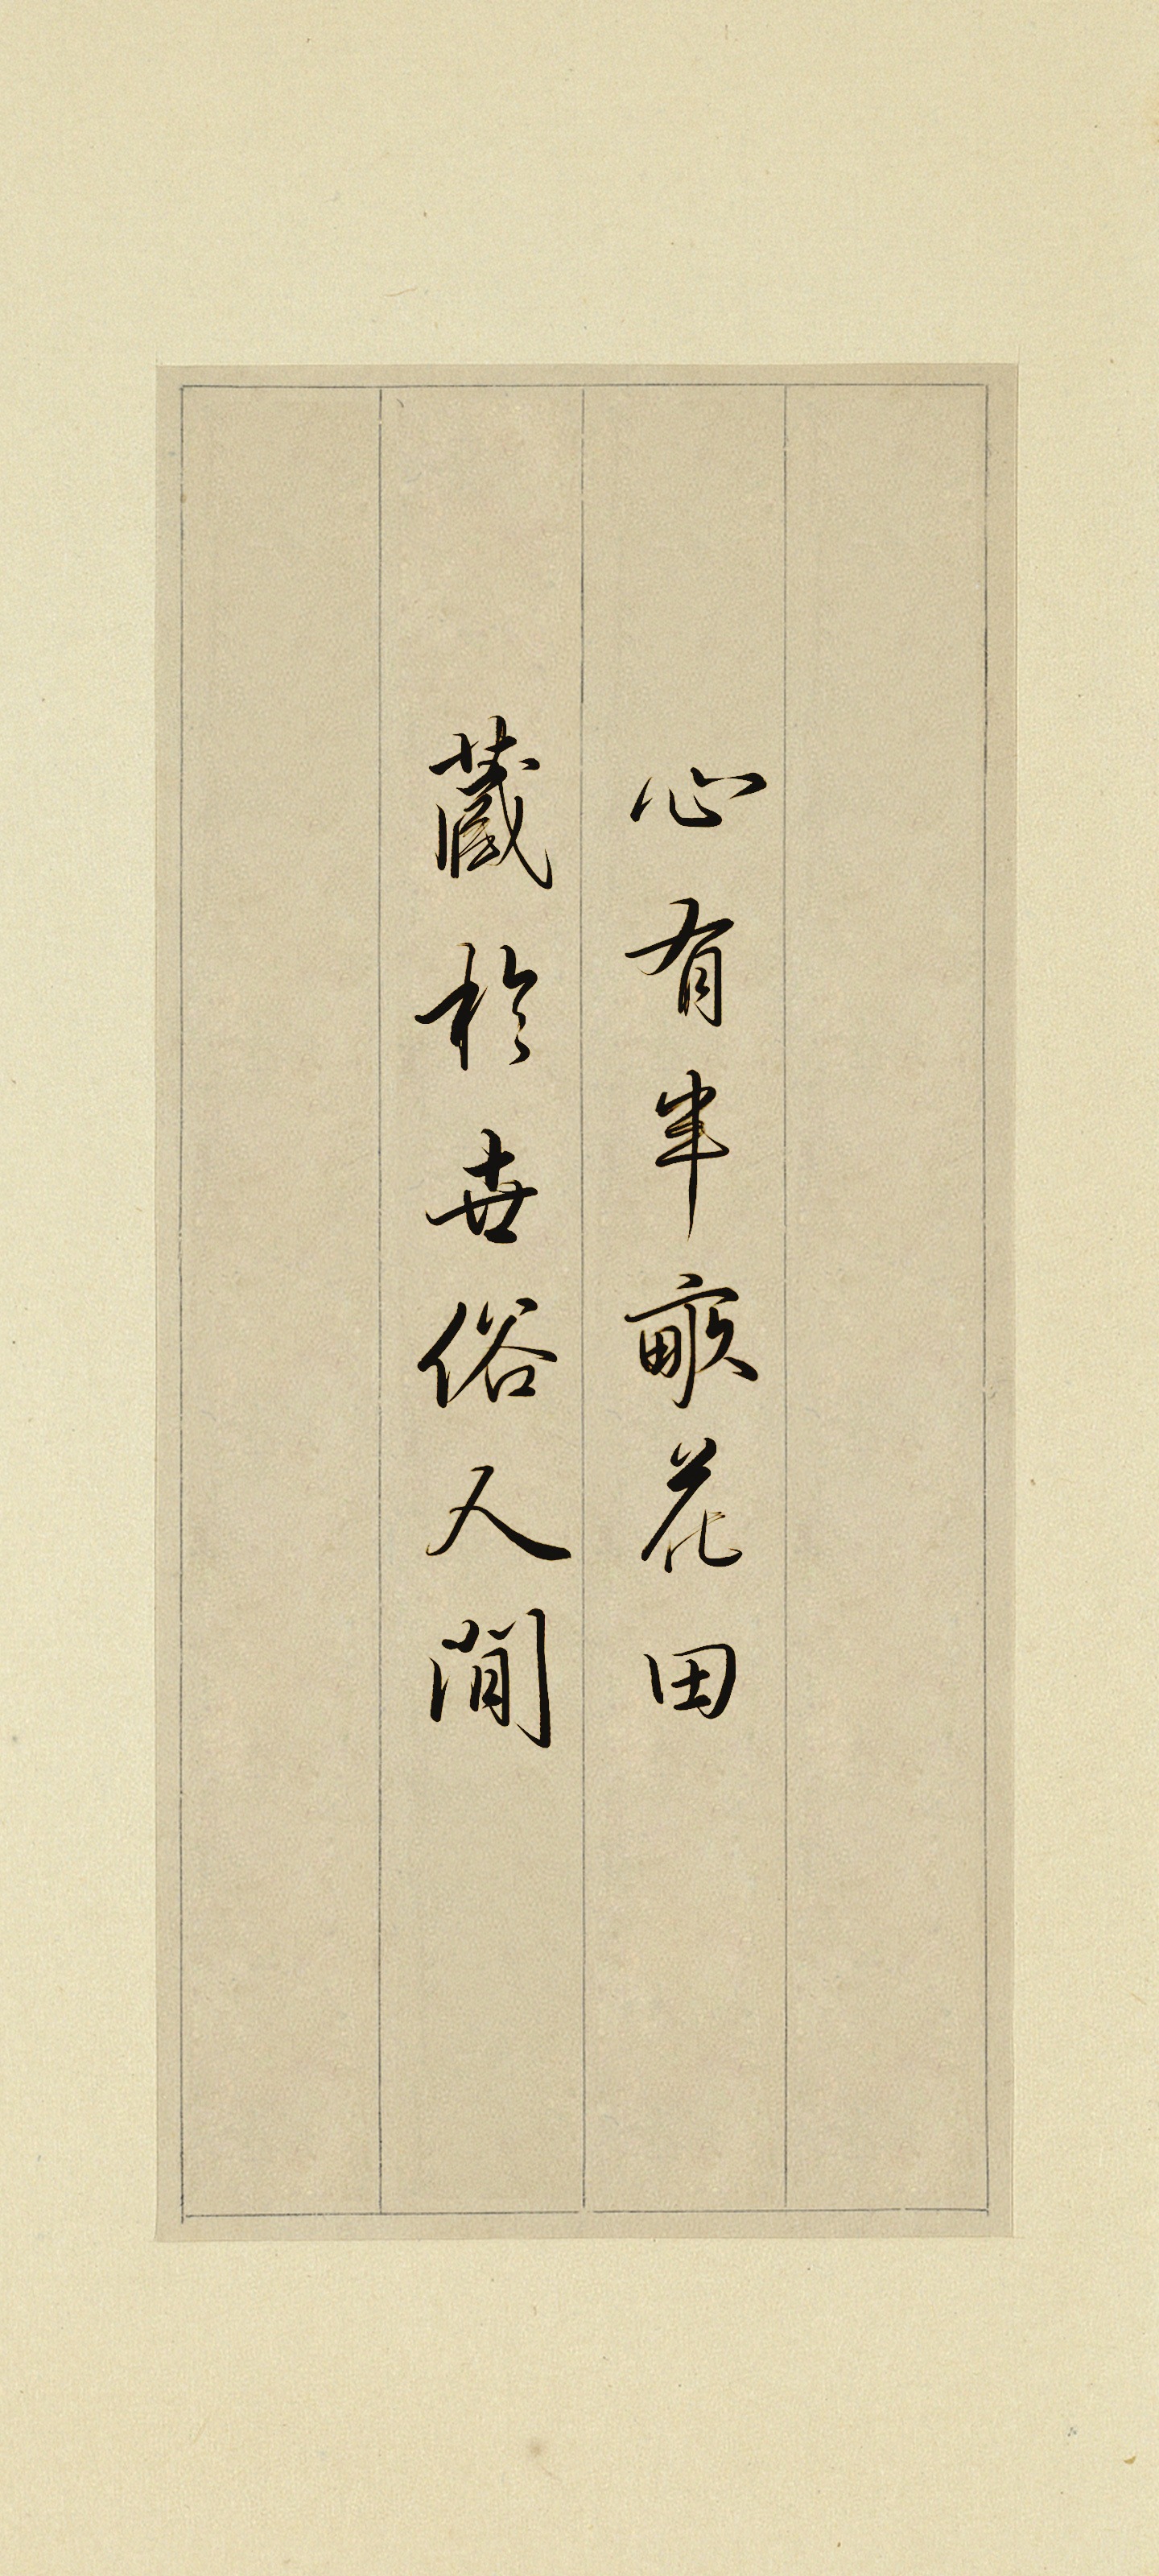 心有半畝花田
藏於世俗人間